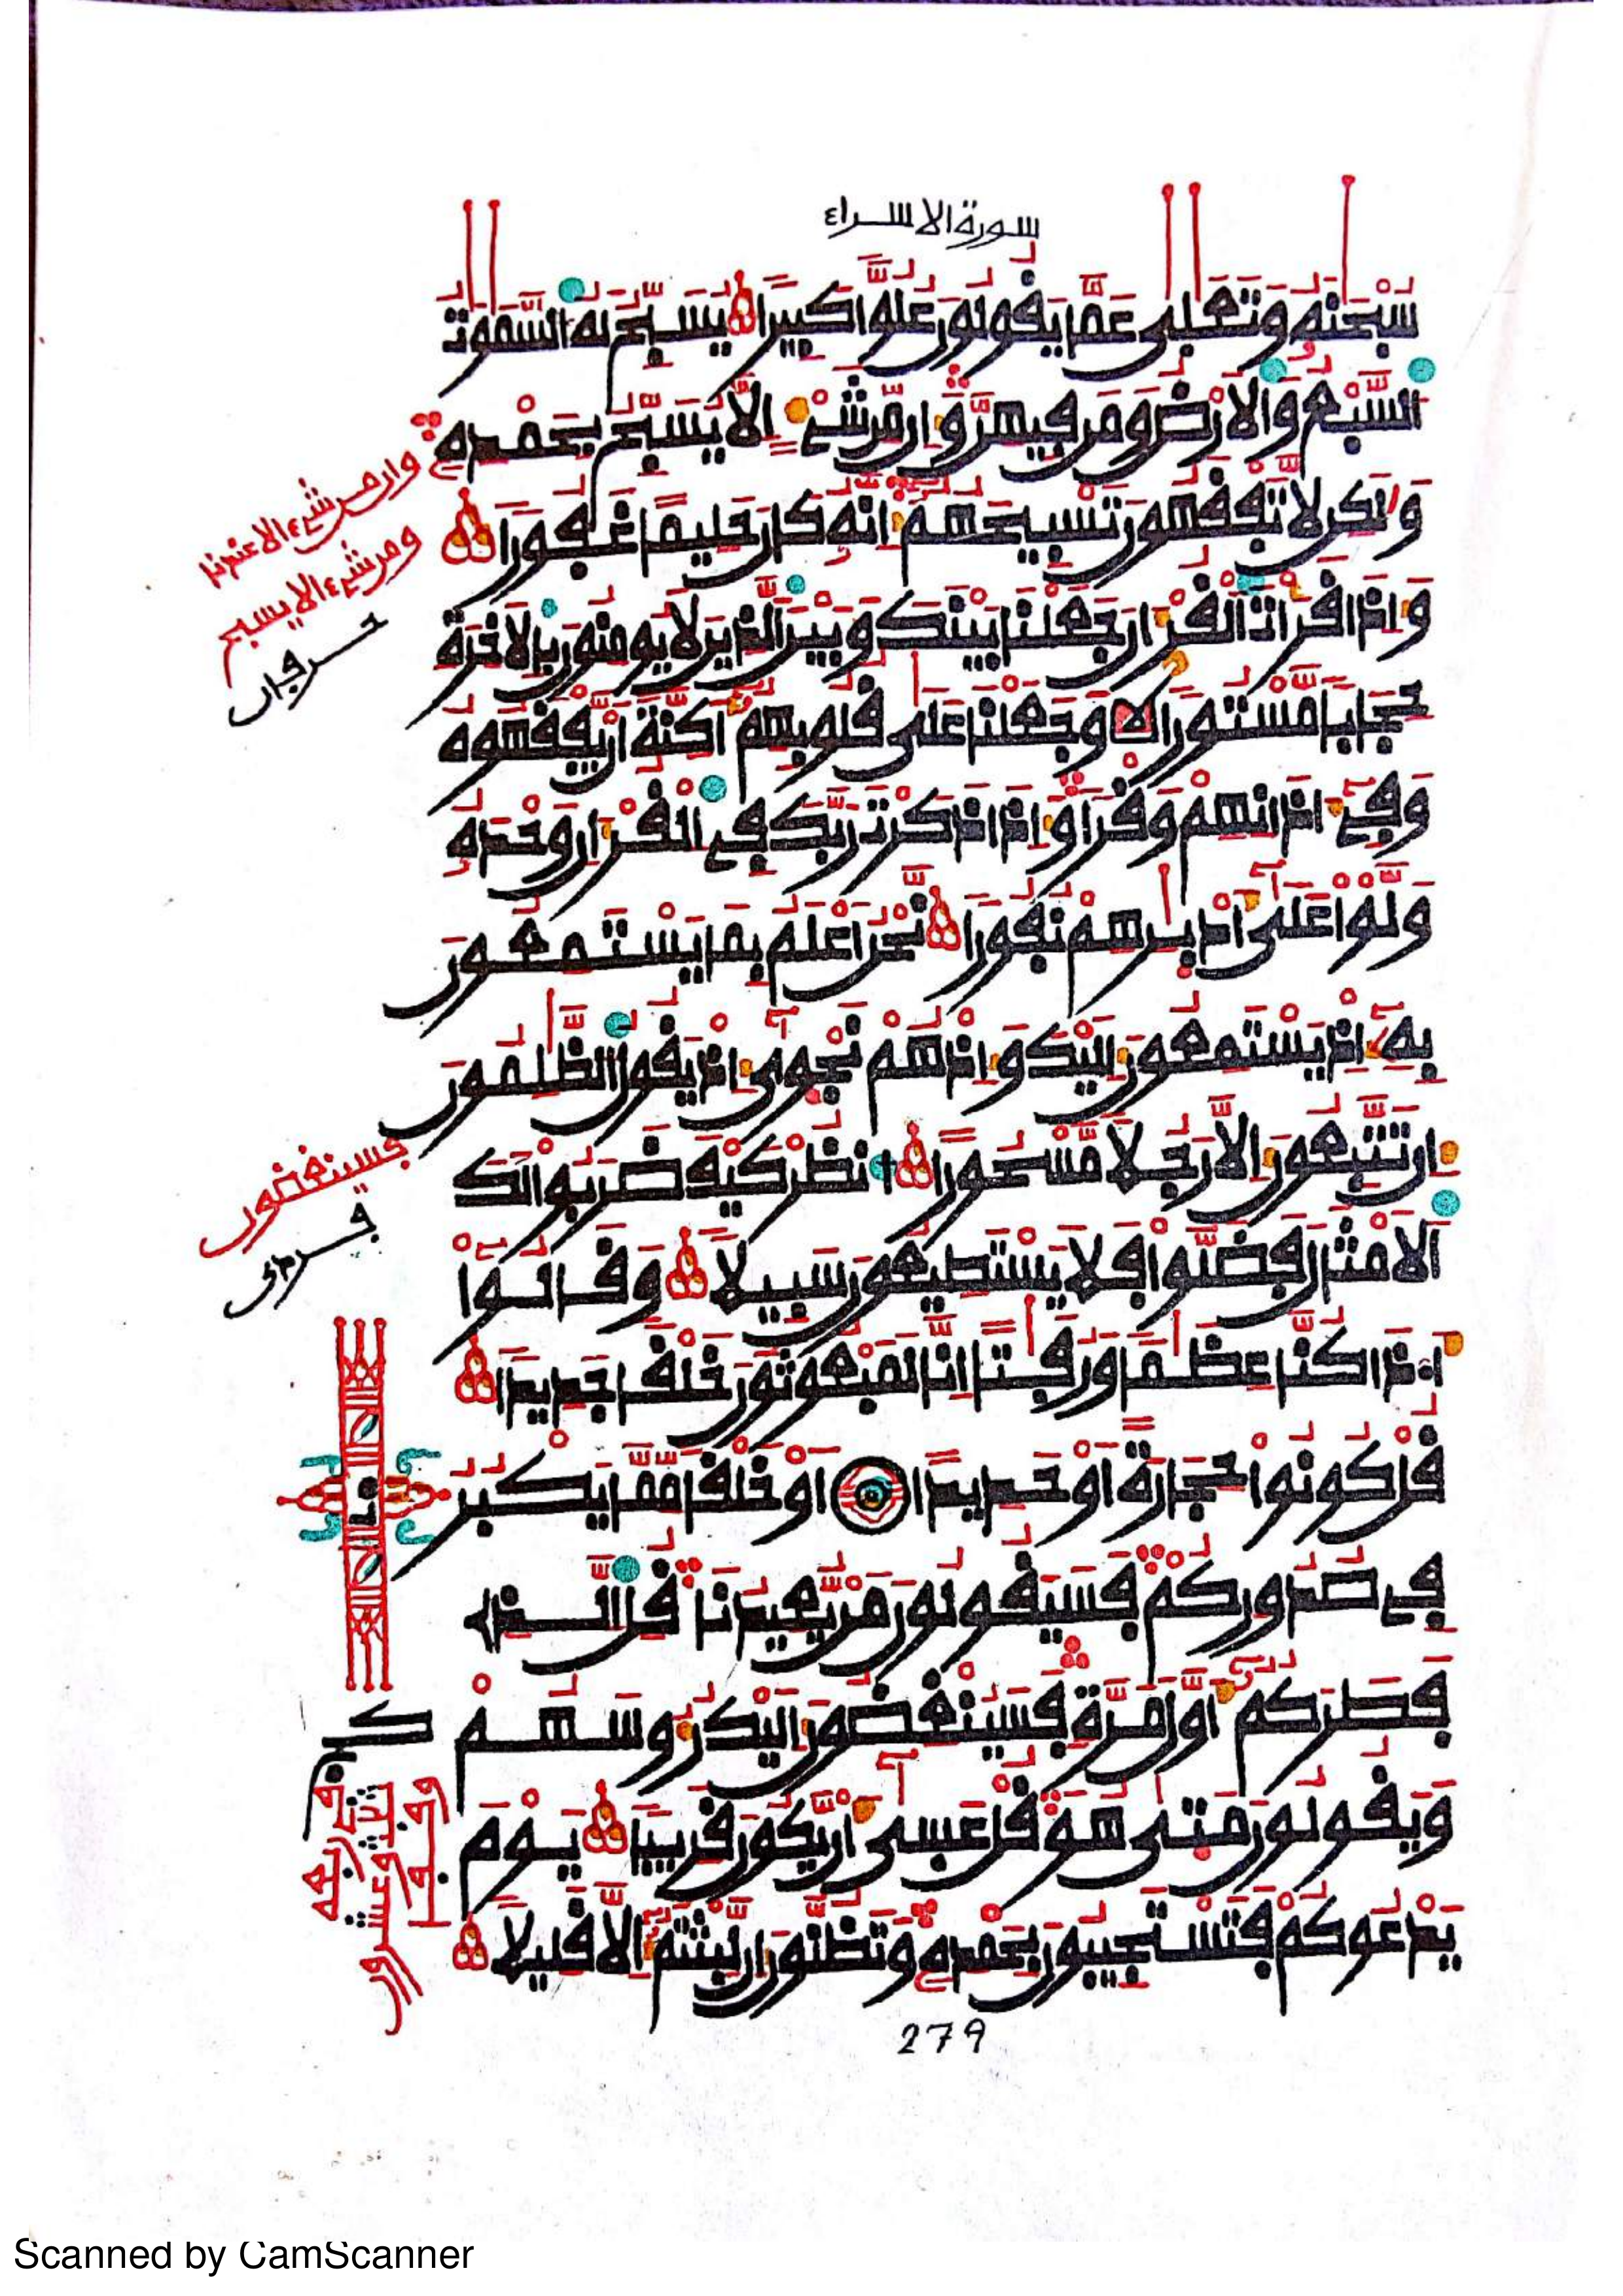 سورة الاسراء
سُبْحَٰنَهُۥ وَتَعَٰلَىٰ عَمَّا يَقُولُونَ عُلُوّٗا كَبِيرٗا يُسَبِّحُ لَهُ السَّمَٰوَٰتُ
السَّبْعُ وَالَارْضُ وَمَن فِيهِنَّ وَإِن مِّن شَےْءٍ اِلَّا يُسَبِّحُ بِحَمْدِهِۦ
وَلَٰكِن لَّا تَفْقَهُونَ تَسْبِيحَهُمُۥٓ إِنَّهُۥ كَانَ حَلِيماً غَفُوراٗ
وَإِذَا قَرَأْتَ اَلْقُرْءَانَ جَعَلْنَا بَيْنَكَ وَبَيْنَ اَلذِينَ لَا يُومِنُونَ بِالَاخِرَةِ
حِجَاباٗ مَّسْتُوراٗ وَجَعَلْنَا عَلَىٰ قُلُوبِهِمُۥٓ أَكِنَّةً اَنْ يَّفْقَهُوهُ
وَفِےٓ ءَاذَانِهِمْ وَقْراٗ وَإِذَا ذَكَرْتَ رَبَّكَ فِے اِلْقُرْءَانِ وَحْدَهُۥ
وَلَّوْا عَلَىٰٓ أَدْبَٰرِهِمْ نُفُوراٗ نَّحْنُ أَعْلَمُ بِمَا يَسْتَمِعُونَ
بِهِۦٓ إِذْ يَسْتَمِعُونَ إِلَيْكَ وَإِذْ هُمْ نَجْوَىٰٓ إِذْ يَقُولُ اُلظَّٰلِمُونَ
إِن تَتَّبِعُونَ إِلَّا رَجُلاٗ مَّسْحُوراً اُ۟نظُرْ كَيْفَ ضَرَبُوا۟ لَكَ
اَلَامْثَالَ فَضَلُّوا۟ فَلَا يَسْتَطِيعُونَ سَبِيلاٗ وَقَالُوٓا۟
أَ۟ذَا كُنَّا عِظَٰماٗ وَرُفَٰتاً اِنَّا لَمَبْعُوثُونَ خَلْقاٗ جَدِيداٗ
قُلْ كُونُوا۟ حِجَارَةً اَوْ حَدِيداً اَوْ خَلْقاٗ مِّمَّا يَكْبُرُ
فِے صُدُورِكُمْ فَسَيَقُولُونَ مَنْ يُّعِيدُنَا قُلِ اِلذِے
فَطَرَكُمُۥٓ أَوَّلَ مَرَّةٖ فَسَيُنْغِضُونَ إِلَيْكَ رُءُوسَهُمْ
وَيَقُولُونَ مَتَىٰ هُوَ قُلْ عَسَىٰٓ أَنْ يَّكُونَ قَرِيباٗ يَوْمَ
يَدْعُوكُمْ فَتَسْتَجِيبُونَ بِحَمْدِهِۦ وَتَظُنُّونَ إِن لَّبِثْتُمُۥٓ إِلَّا قَلِيلاٗ
وان من شےء الا عندنا
ومن شےء الا يسبح
حرفان
فسينغضون
فردى
279
Scanned by CamScanner